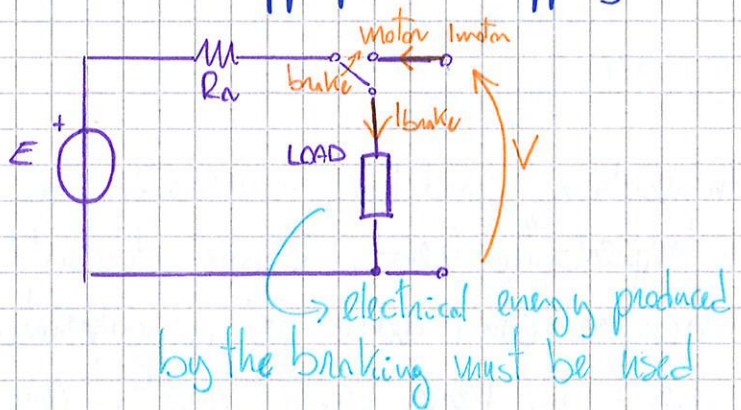 motor Imotor
brake
RA
+
E
Ibrake
LOAD
V
electrical energy produced
by the braking must be used